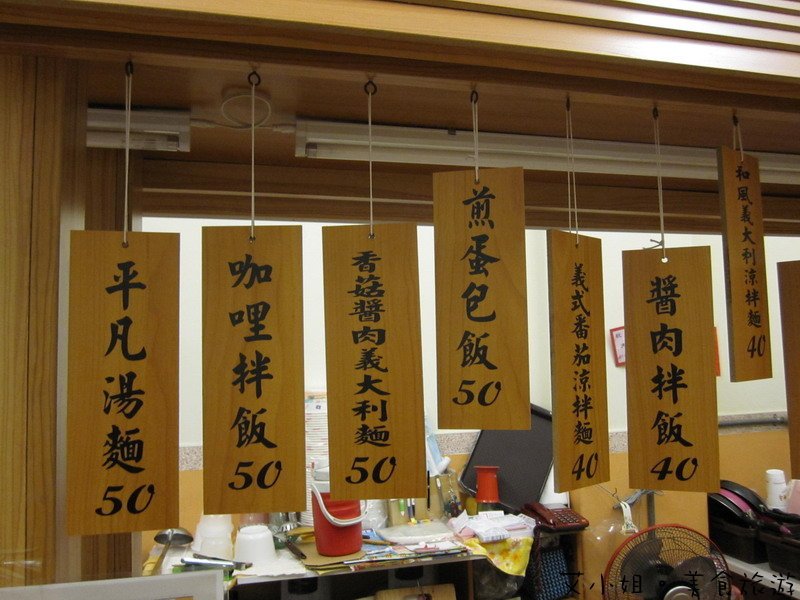 平凡湯麵 50
咖哩拌飯 50
香菇醬肉義大利麵 50
煎蛋包飯 50
義式番茄涼拌麵 40
醬肉拌飯 40
和風義大利涼拌麵 40
艾小姐。美食旅游